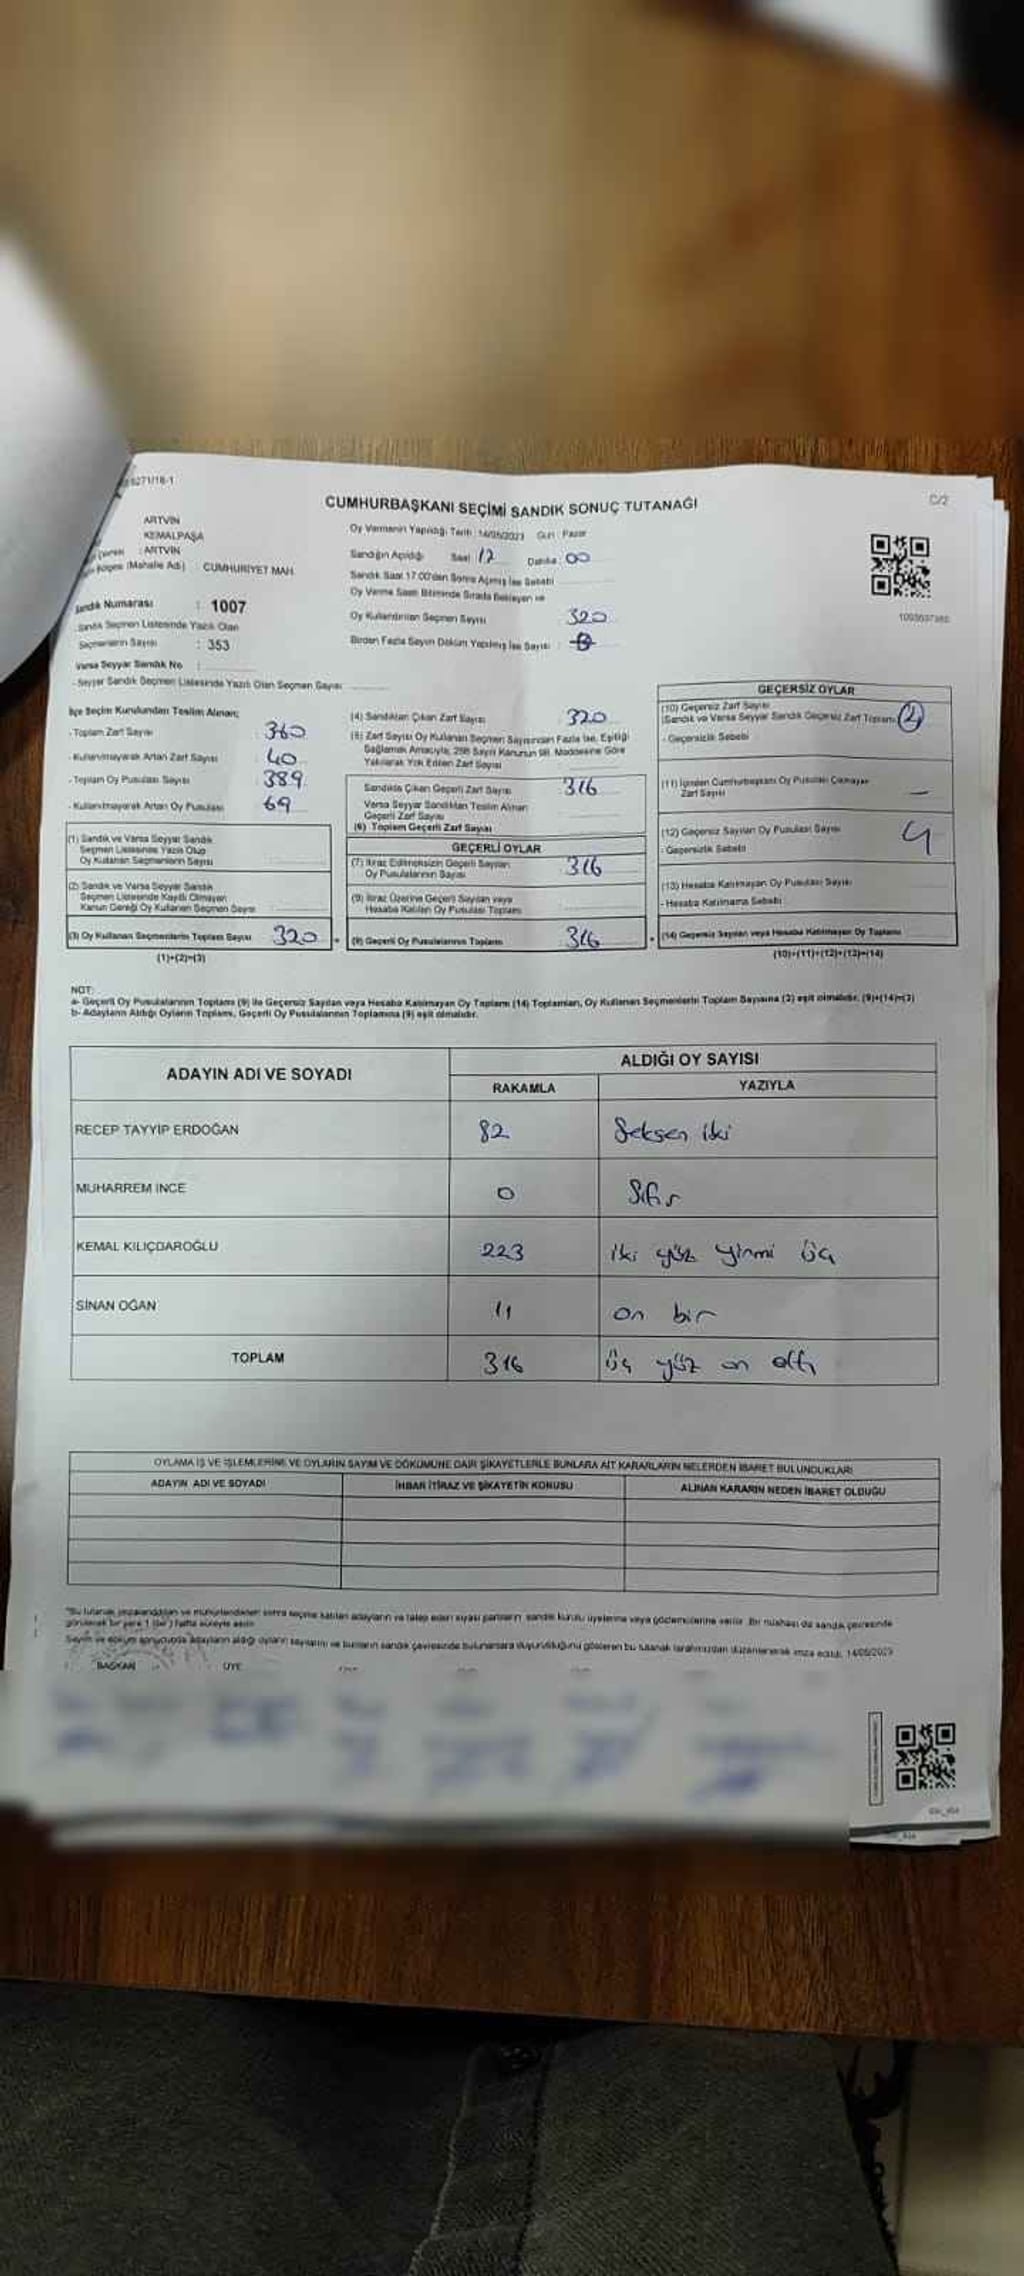 6271/16-1
C/2
CUMHURBAŞKANI SEÇİMİ SANDIK SONUÇ TUTANAĞI
ARTVİN
KEMALPAŞA
: ARTVİN
(Mahalle Adı) CUMHURİYET MAH.
Sandık Numarası : 1007
Sandık Seçmen Listesinde Yazılı Olan
Seçmenlerin Sayısı : 353
Varsa Seyyar Sandık No :
- Seyyar Sandık Seçmen Listesinde Yazılı Olan Seçmen Sayısı
Oy Vermenin Yapıldığı Tarih : 14/05/2023 Gün : Pazar
Sandığın Açıldığı Saat : 17 Dakika : 00
Sandık Saat 17:00'den Sonra Açılmış İse Sebebi
Oy Verme Saati Bitiminde Sırada Bekleyen ve
Oy Kullandırılan Seçmen Sayısı 320
Birden Fazla Sayım Döküm Yapılmış İse Sayısı :
İlçe Seçim Kurulundan Teslim Alınan;
- Toplam Zarf Sayısı 360
- Kullanılmayarak Artan Zarf Sayısı 40
- Toplam Oy Pusulası Sayısı 389
- Kullanılmayarak Artan Oy Pusulası 69
(1) Sandık ve Varsa Seyyar Sandık
Seçmen Listesinde Yazılı Olup
Oy Kullanan Seçmenlerin Sayısı
(2) Sandık ve Varsa Seyyar Sandık
Seçmen Listesinde Kayıtlı Olmayan
Kanun Gereği Oy Kullanan Seçmen Sayısı
(3) Oy Kullanan Seçmenlerin Toplam Sayısı 320
(1)+(2)=(3)
(4) Sandıktan Çıkan Zarf Sayısı 320
(5) Zarf Sayısı Oy Kullanan Seçmen Sayısından Fazla İse, Eşitliği
Sağlamak Amacıyla, 298 Sayılı Kanunun 98. Maddesine Göre
Yakılarak Yok Edilen Zarf Sayısı
Sandıkta Çıkan Geçerli Zarf Sayısı 316
Varsa Seyyar Sandıktan Teslim Alınan
Geçerli Zarf Sayısı
(6) Toplam Geçerli Zarf Sayısı
GEÇERLİ OYLAR
(7) İtiraz Edilmeksizin Geçerli Sayılan
Oy Pusulalarının Sayısı 316
İtiraz Üzerine Geçerli Sayılan veya
Hesaba Katılan Oy Pusulası Toplamı
(9) Geçerli Oy Pusulalarının Toplamı 316
GEÇERSİZ OYLAR
(10) Geçersiz Zarf Sayısı
(Sandık ve Varsa Seyyar Sandık Geçersiz Zarf Toplamı)
- Geçersizlik Sebebi
(11) İçinden Cumhurbaşkanı Oy Pusulası Çıkmayan
Zarf Sayısı —
(12) Geçersiz Sayılan Oy Pusulası Sayısı 4
- Geçersizlik Sebebi
(13) Hesaba Katılmayan Oy Pusulası Sayısı
- Hesaba Katılmama Sebebi
(14) Geçersiz Sayılan veya Hesaba Katılmayan Oy Toplamı
(10)+(11)+(12)+(13)=(14)
NOT:
a- Geçerli Oy Pusulalarının Toplamı (9) ile Geçersiz Sayılan veya Hesaba Katılmayan Oy Toplamı (14) Toplamları, Oy Kullanan Seçmenlerin Toplam Sayısına (3) eşit olmalıdır. (9)+(14)=(3)
b- Adayların Aldığı Oyların Toplamı, Geçerli Oy Pusulalarının Toplamına (9) eşit olmalıdır.
ADAYIN ADI VE SOYADI
ALDIĞI OY SAYISI
RAKAMLA YAZIYLA
RECEP TAYYİP ERDOĞAN 82 Seksen iki
MUHARREM İNCE 0 Sıfır
KEMAL KILIÇDAROĞLU 223 iki yüz yirmi üç
SİNAN OĞAN 11 on bir
TOPLAM 316 üç yüz on altı
OYLAMA İŞ VE İŞLEMLERİNE VE OYLARIN SAYIM VE DÖKÜMÜNE DAİR ŞİKAYETLERLE BUNLARA AİT KARARLARIN NELERDEN İBARET BULUNDUKLARI
ADAYIN ADI VE SOYADI
İHBAR İTİRAZ VE ŞİKAYETİN KONUSU
ALINAN KARARIN NEDEN İBARET OLDUĞU
"Bu tutanak imzalandıktan ve mühürlendikten sonra seçime katılan adayların ve talep eden siyasi partilerin sandık kurulu üyelerine veya gözlemcilerine verilir. Bir nüshası da sandık çevresinde
görülecek bir yere 1 (bir) hafta süreyle asılır.
Sayım ve döküm sonucunda adayların aldığı oyların sayılarını ve bunların sandık çevresinde bulunanlara duyurulduğunu gösteren bu tutanak tarafımızdan düzenlenerek imza edildi. 14/05/2023
BAŞKAN ÜYE